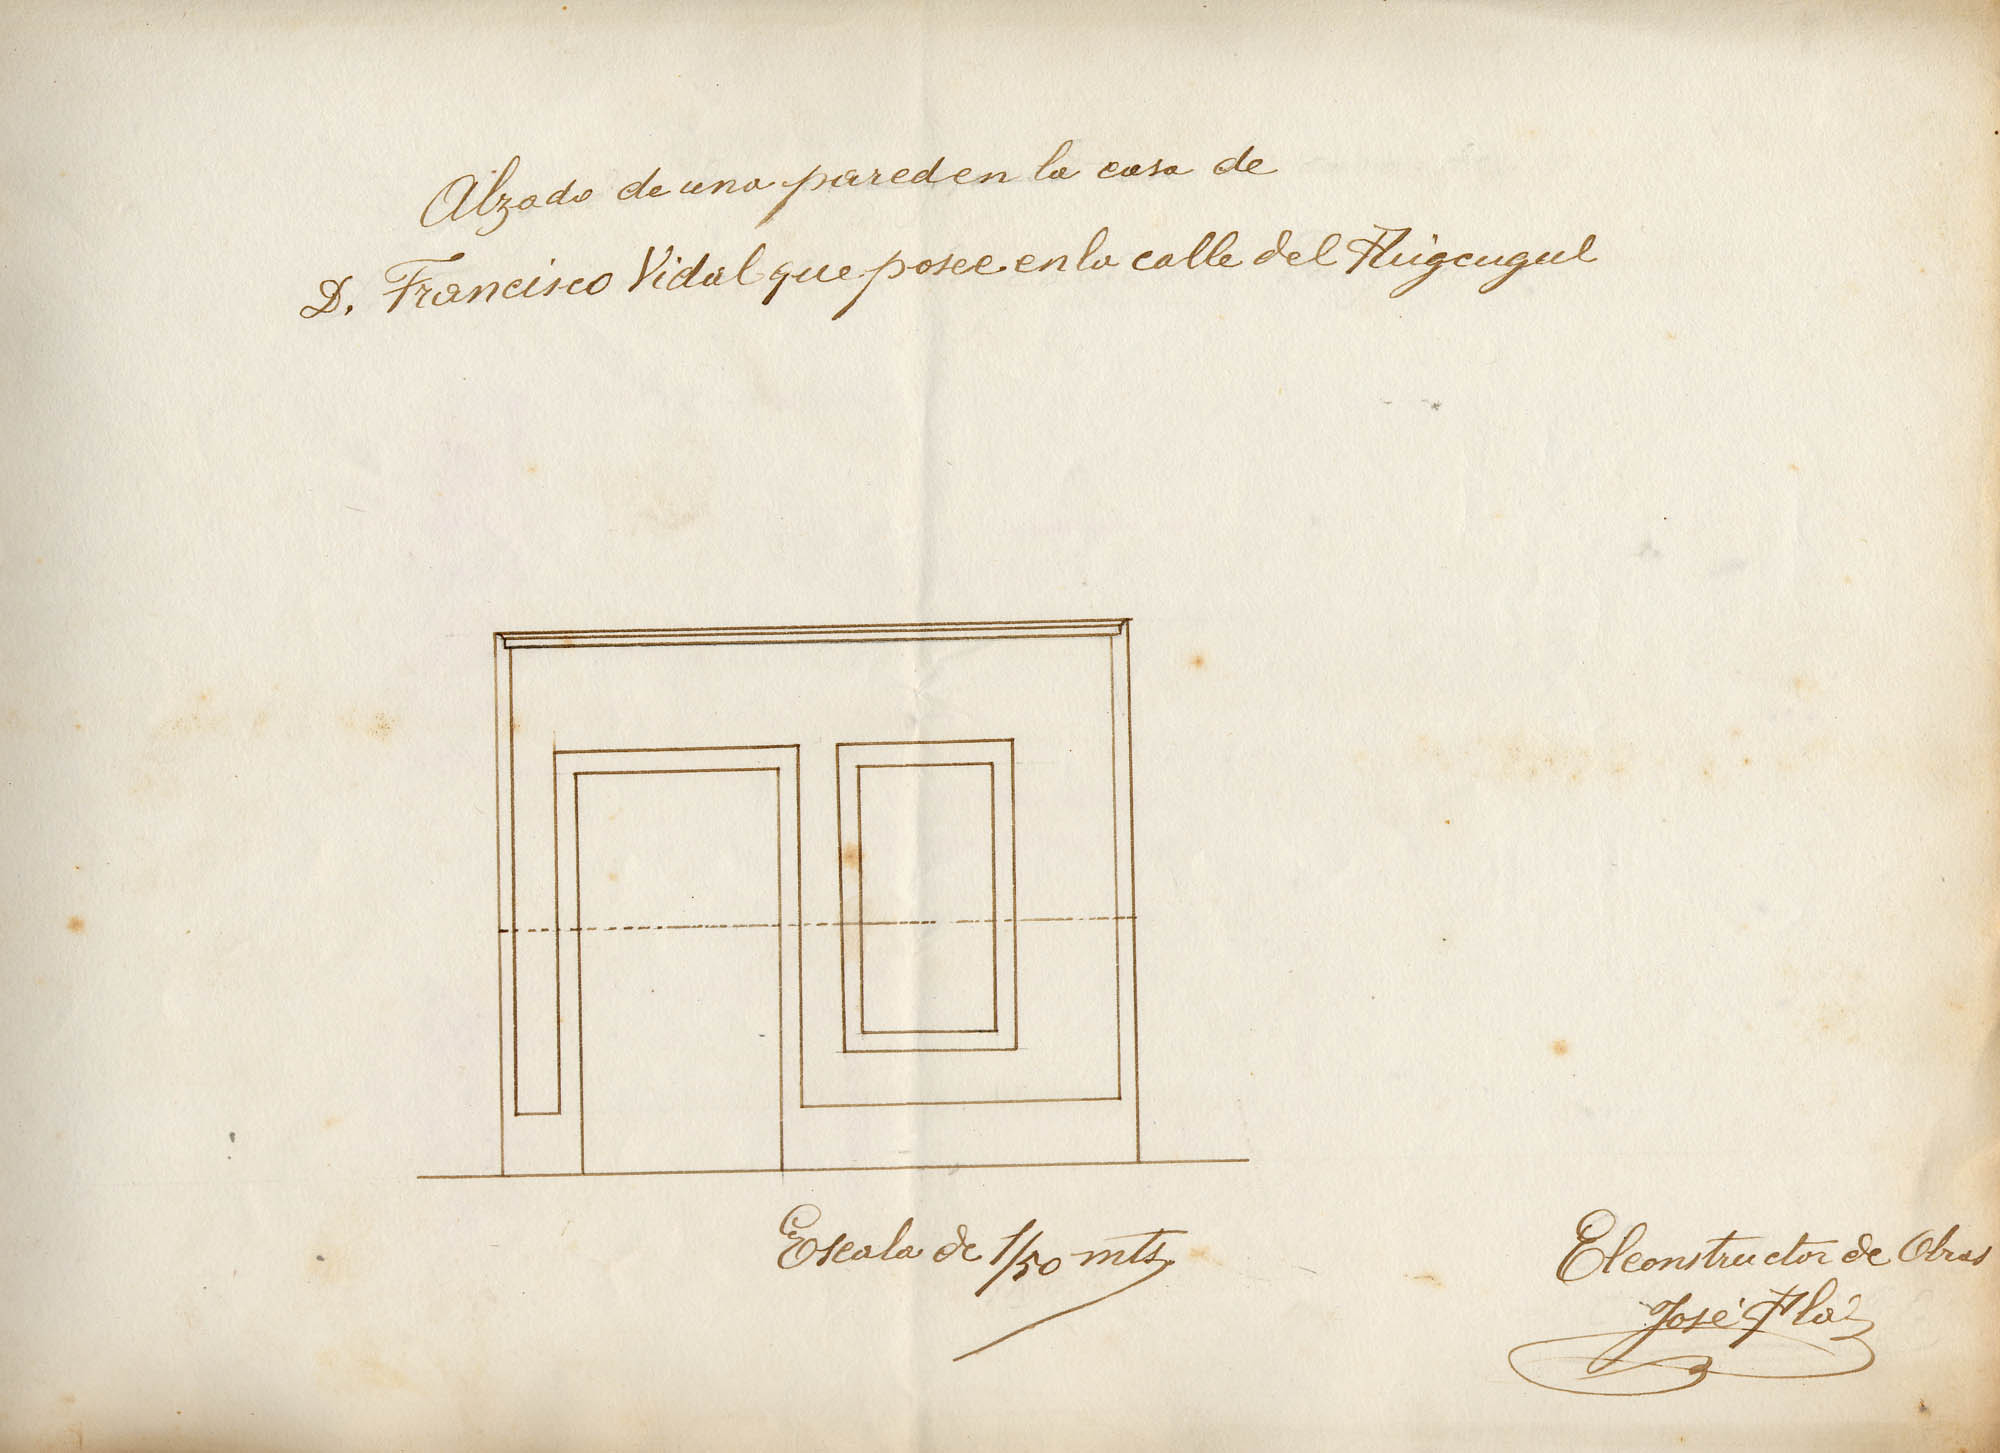 Alzado de una pared en la casa de
D. Francisco Vidal que posee en la calle del Puigcugul
Escala de 1/50 mts.
El constructor de Obras
José Plá